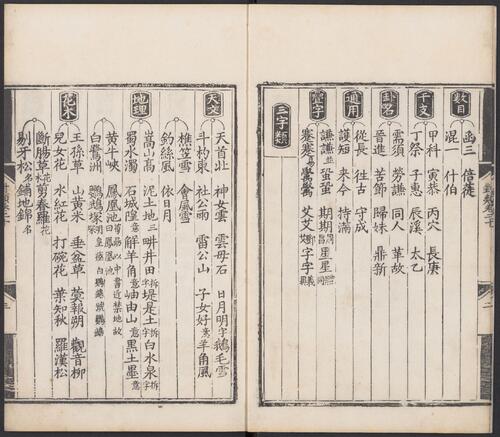 數目
函三 倍蓰
混一 什伯
干支
甲科 寅恭 丙穴 長庚
丁祭 子惠 辰溪 太乙
卦名
需須 勞謙 同人 革故
晉進 苦節 歸妹 鼎新
通用
從長 往古 守成
護短 來今 持滿
疊字
謙謙 蛩蛩 期期 星星
蹇蹇 鷽鷽 艾艾 字字
三字類
天文
天首北 神女雲 雲母石 日月明字 鵝毛雪
斗杓東 社公雨 雷公山 子女好意 羊角風
樵笠雪 會風雪
釣絲風 依日月
地理
嵩山高 泥土地三 畊井田拆字 堤是土拆字 白水泉拆字
蜀水濁 石城隍意 解羊角意 岫由山意 黑土墨意
黃牛峽 鳳凰池
白鷺洲 鸚鵡塚
花木
王孫草 山黃米 垂盆草 萱報朔 觀音柳
兒女花 水紅花 打碗花 葉知秋 羅漢松
斷腸草 剪春羅花
剔牙松名 鋪地錦名